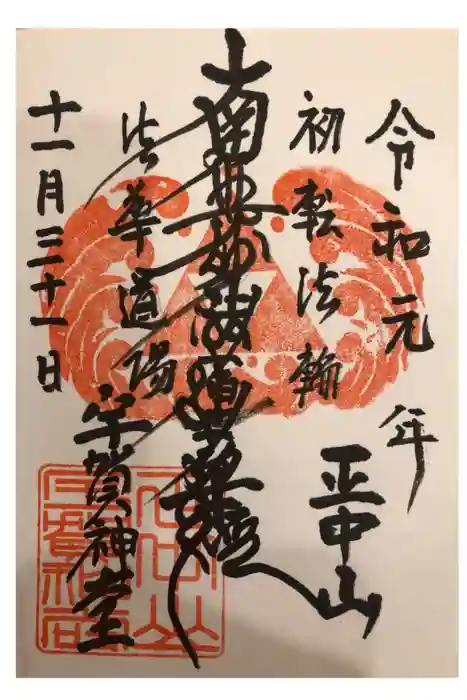 令和元年
初転法輪
正中山
南無妙法蓮華経
法華道場
宇賀神堂
十一月二十一日